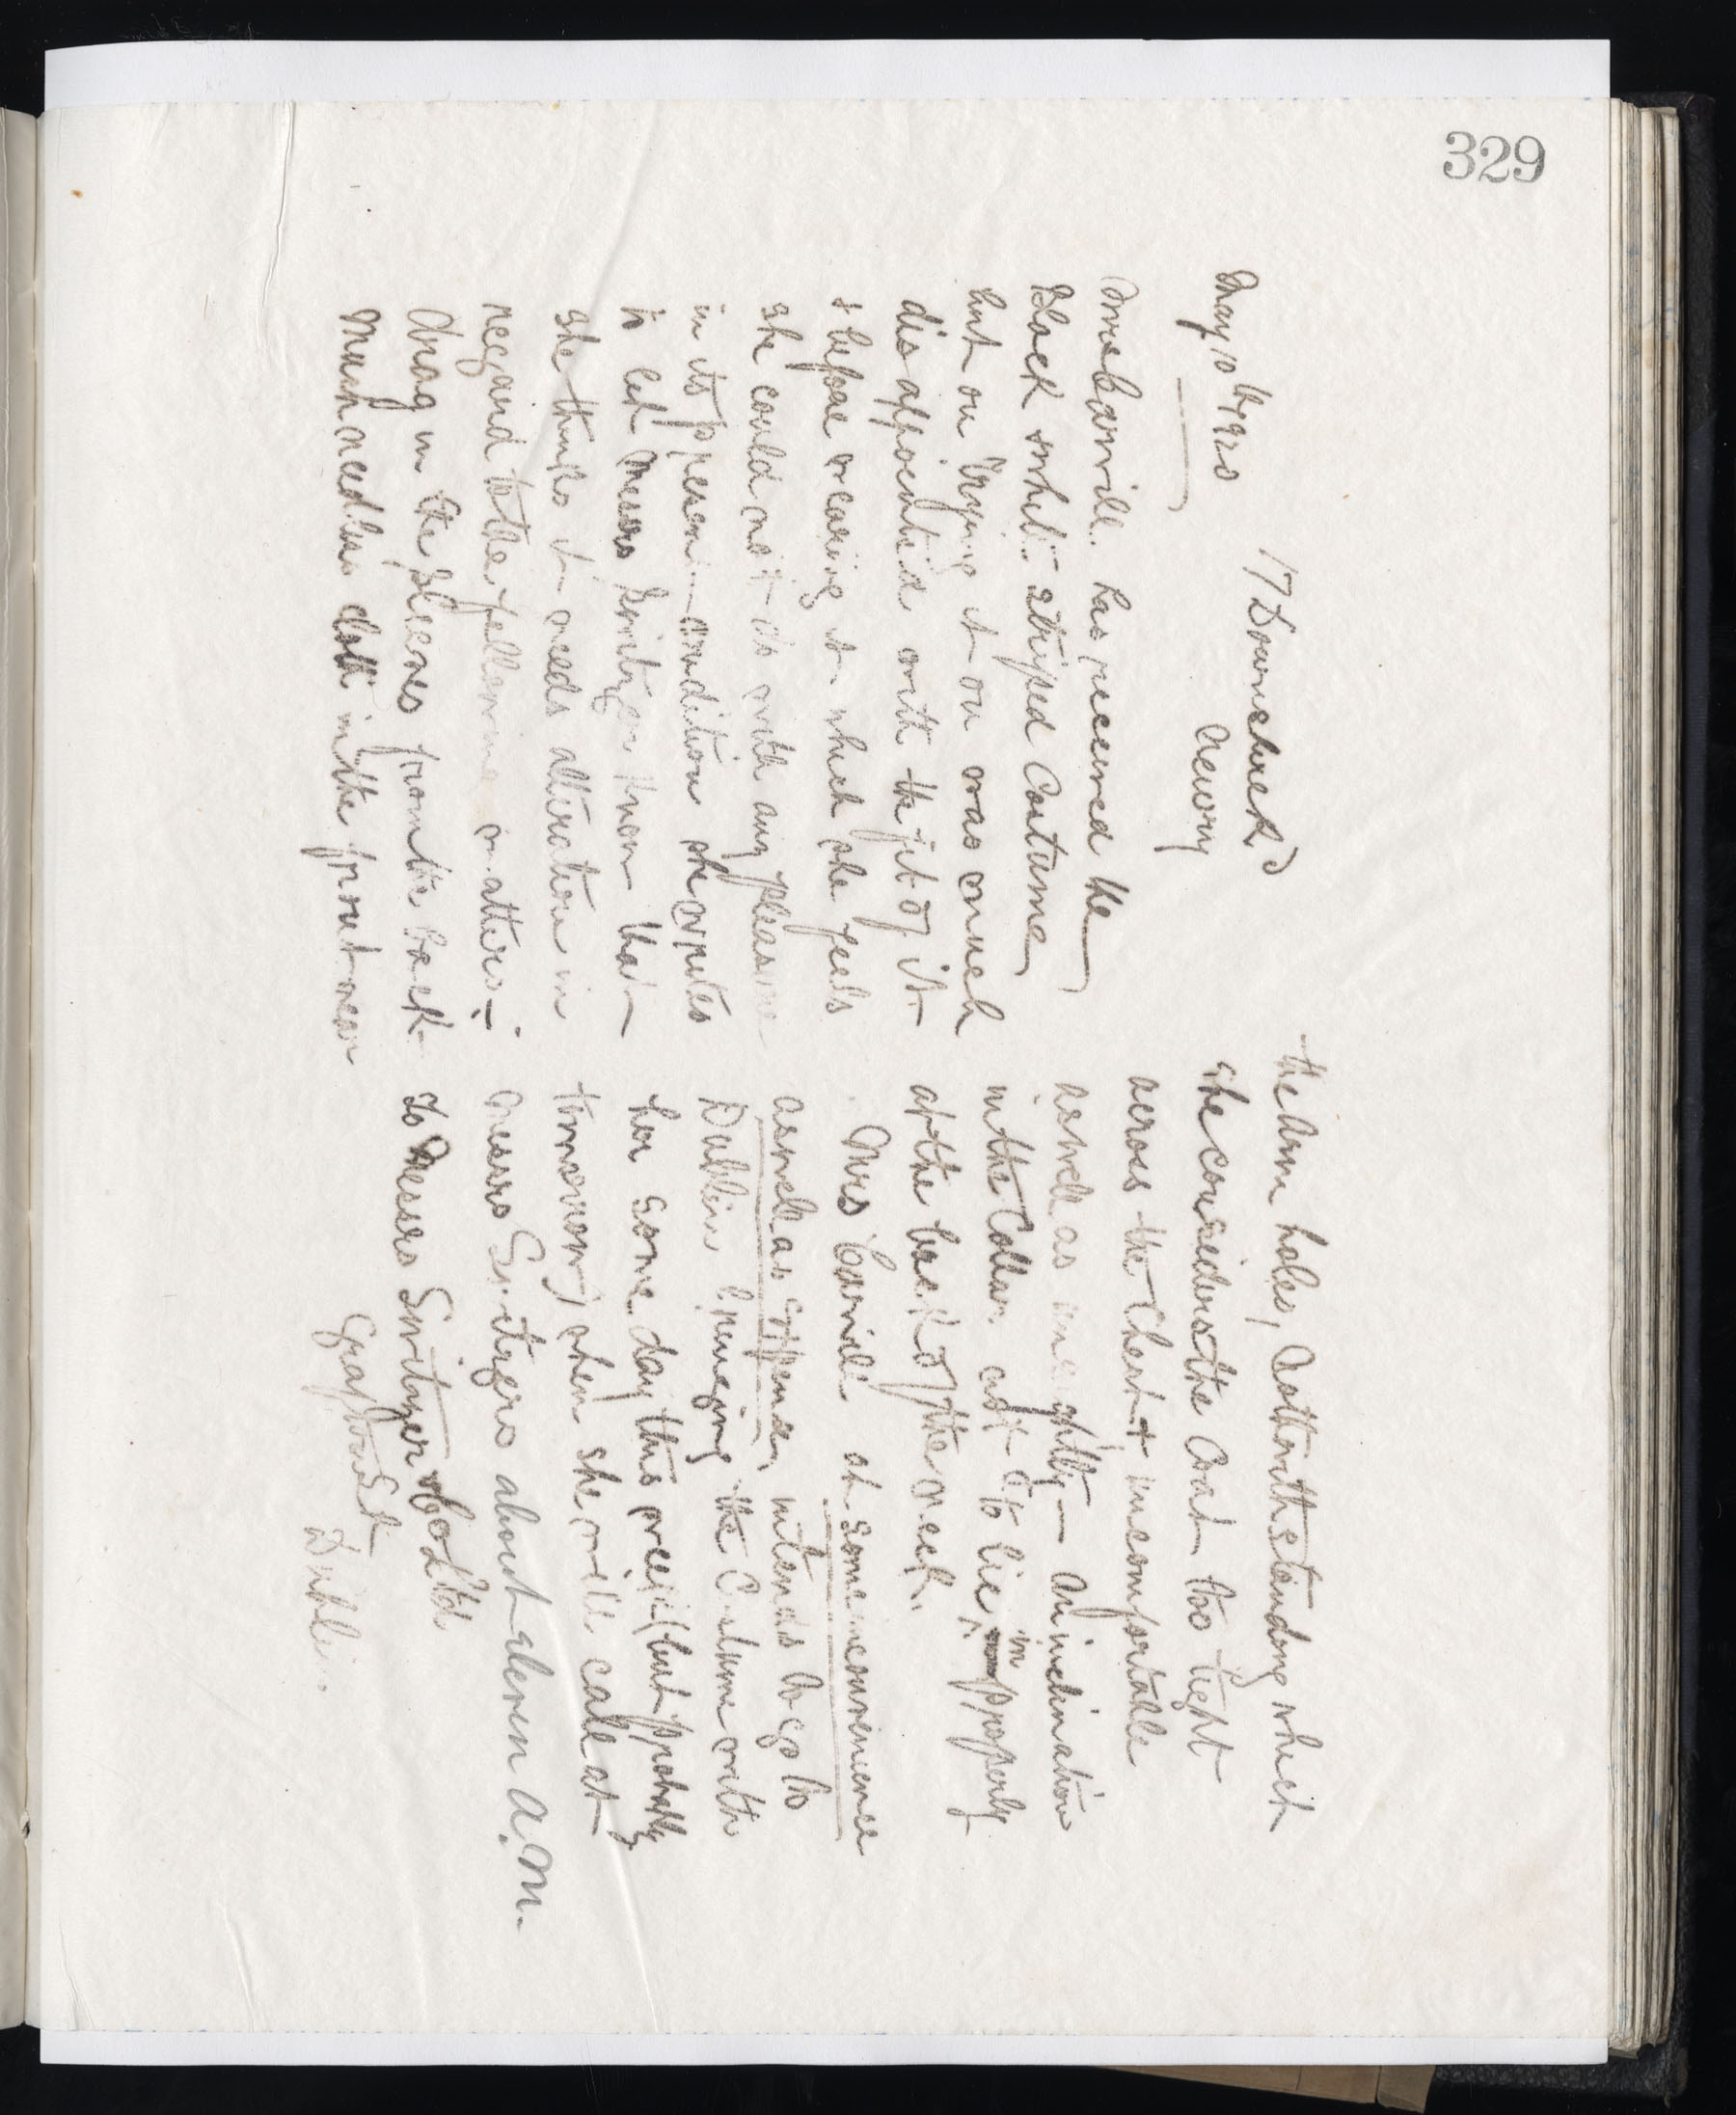 329
17 Downshire Rd
Newry
May 10th 1920
Mrs Carvill has received the
Black & white striped Costume
but on trying it on was much
disappointed with the fit of it
& before wearing it which she feels
she could not do with any pleasure
in its present condition she writes
to let Messrs Switzer know that
she thinks it needs alteration in
regard to the following matters:-
drag in the sleeves from the back
much needless cloth in the front near
the arm holes, notwithstanding which
she considers the coat too tight
across the chest & uncomfortable
as well as unsightly — an inclination
in the Collar not to lie in properly
at the back of the neck.
Mrs Carvill at some inconvenience
as well as expense, intends to go to
Dublin bringing the Costume with
her some day this week (but probably
tomorrow) when she will call at
Messrs Switzers about eleven a.m.
To Messrs Switzer & Co Ltd
Grafton St
Dublin.